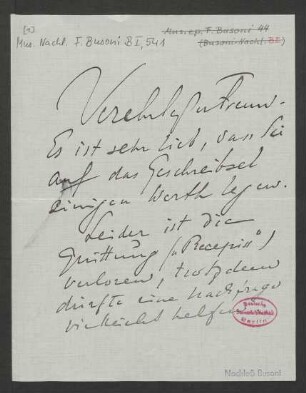 [1]
Mus. Nachl. F. Busoni B I, 541
Mus. ep. F. Busoni 44
(Busoni-Nachl. B I)
Verehrtester Freund.
Es ist sehr lieb, dass Sie
auf das Geschreibsel
einigen Werth legen.
Leider ist die
Quittung („Recepis“)
verloren, trotzdem
dürfte eine Nachfrage
vielleicht helfen.
Deutsche
Staatsbibliothek
Berlin
Nachlaß Busoni